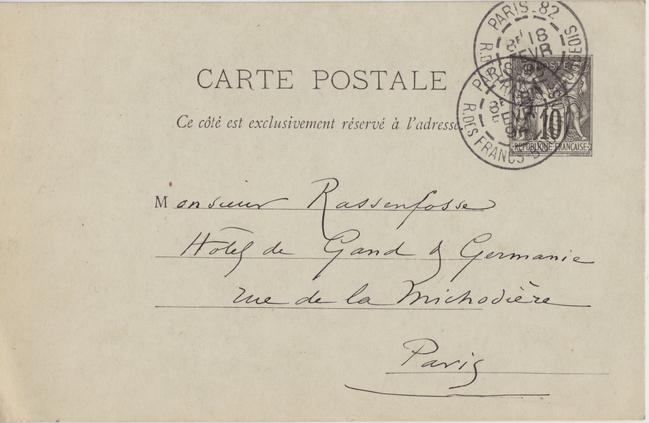 PARIS-82
R. DES FRANCS-B
8E
18
FEVR
PARIS-82
R. DES FRANCS-B
8E
POSTES
10
REPUBLIQUE FRANÇAISE
CARTE POSTALE
Ce côté est exclusivement réservé à l'adresse.
Monsieur Rassenfosse
Hôtel de Gand & Germanie
rue de la Michodière
Paris